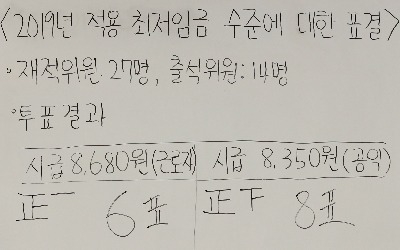 <2019년 적용 최저임금 수준에 대한 표결>
· 재적위원 27명, 출석위원: 14명
· 투표결과
시급 8,680원(근로자) 시급 8,350원(공익)
正一 6표 正下 8표